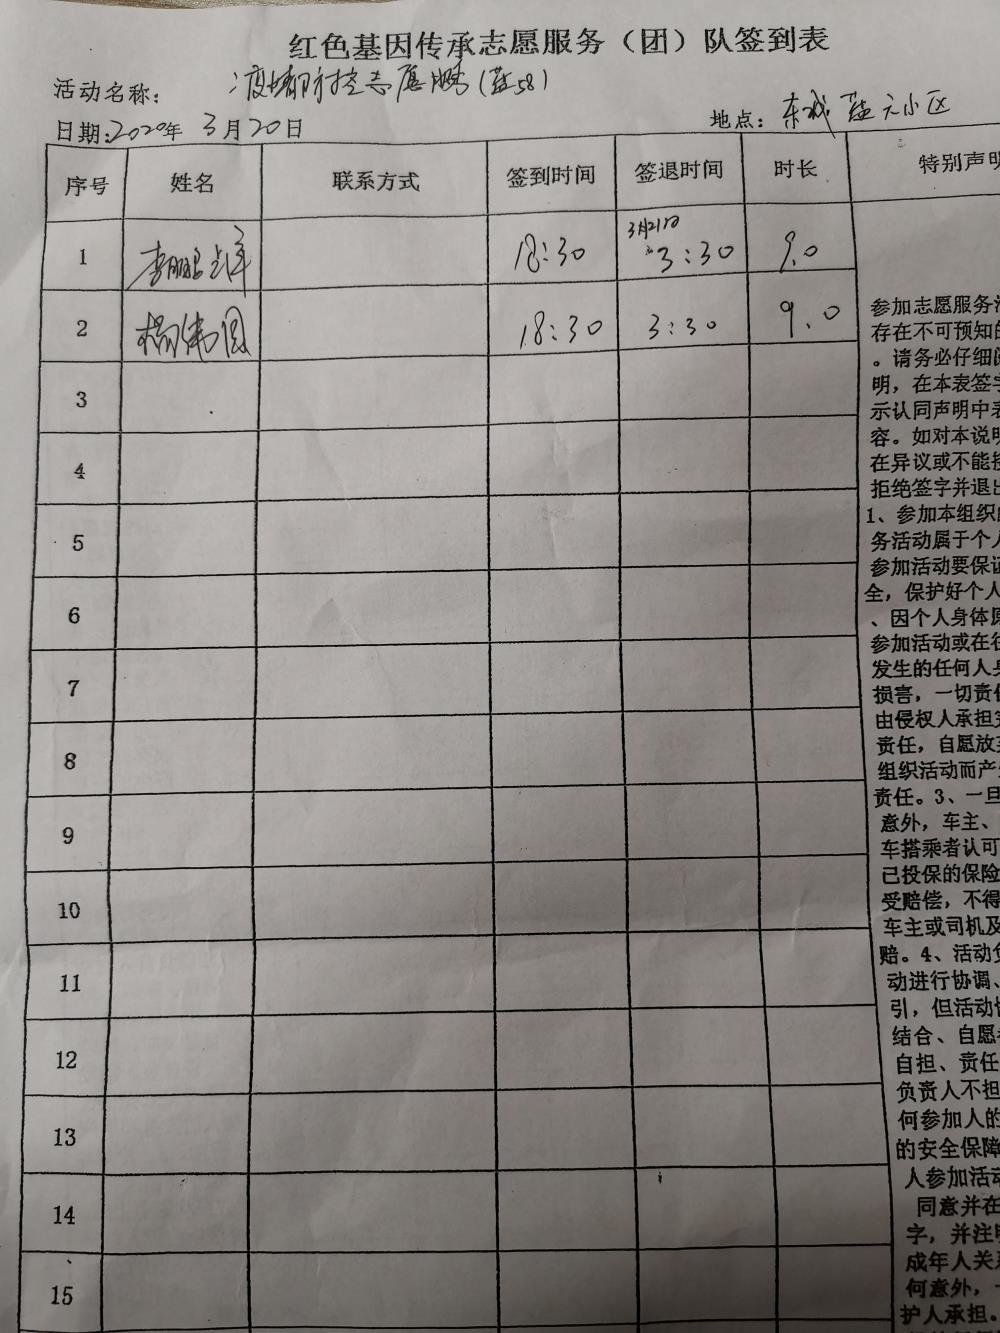 红色基因传承志愿服务（团）队签到表
活动名称： 疫情防控志愿服务（蓝58）
日期:2020年 3月20日 地点：东城蓝天小区
序号 姓名 联系方式 签到时间 签退时间 时长 特别声明
1 18:30 3月21日 3:30 9.0
2 杨伟国 18:30 3:30 9.0
3
4
5
6
7
8
9
10
11
12
13
14
15
参加志愿服务活
存在不可预知的
。请务必仔细阅
明，在本表签字
示认同声明中表
容。如对本说明
在异议或不能接
拒绝签字并退出
1、参加本组织的
务活动属于个人
参加活动要保证
全，保护好个人
、因个人身体原
参加活动或在往
发生的任何人身
损害，一切责任
由侵权人承担完
责任，自愿放弃
组织活动而产生
责任。3、一旦
意外，车主、
车搭乘者认可
己投保的保险
受赔偿，不得
车主或司机及
赔。4、活动负
动进行协调、
引，但活动
结合、自愿
自担、责任
负责人不担
何参加人的
的安全保障
人参加活动
同意并在
字，并注明
成年人关系
何意外，一
护人承担。